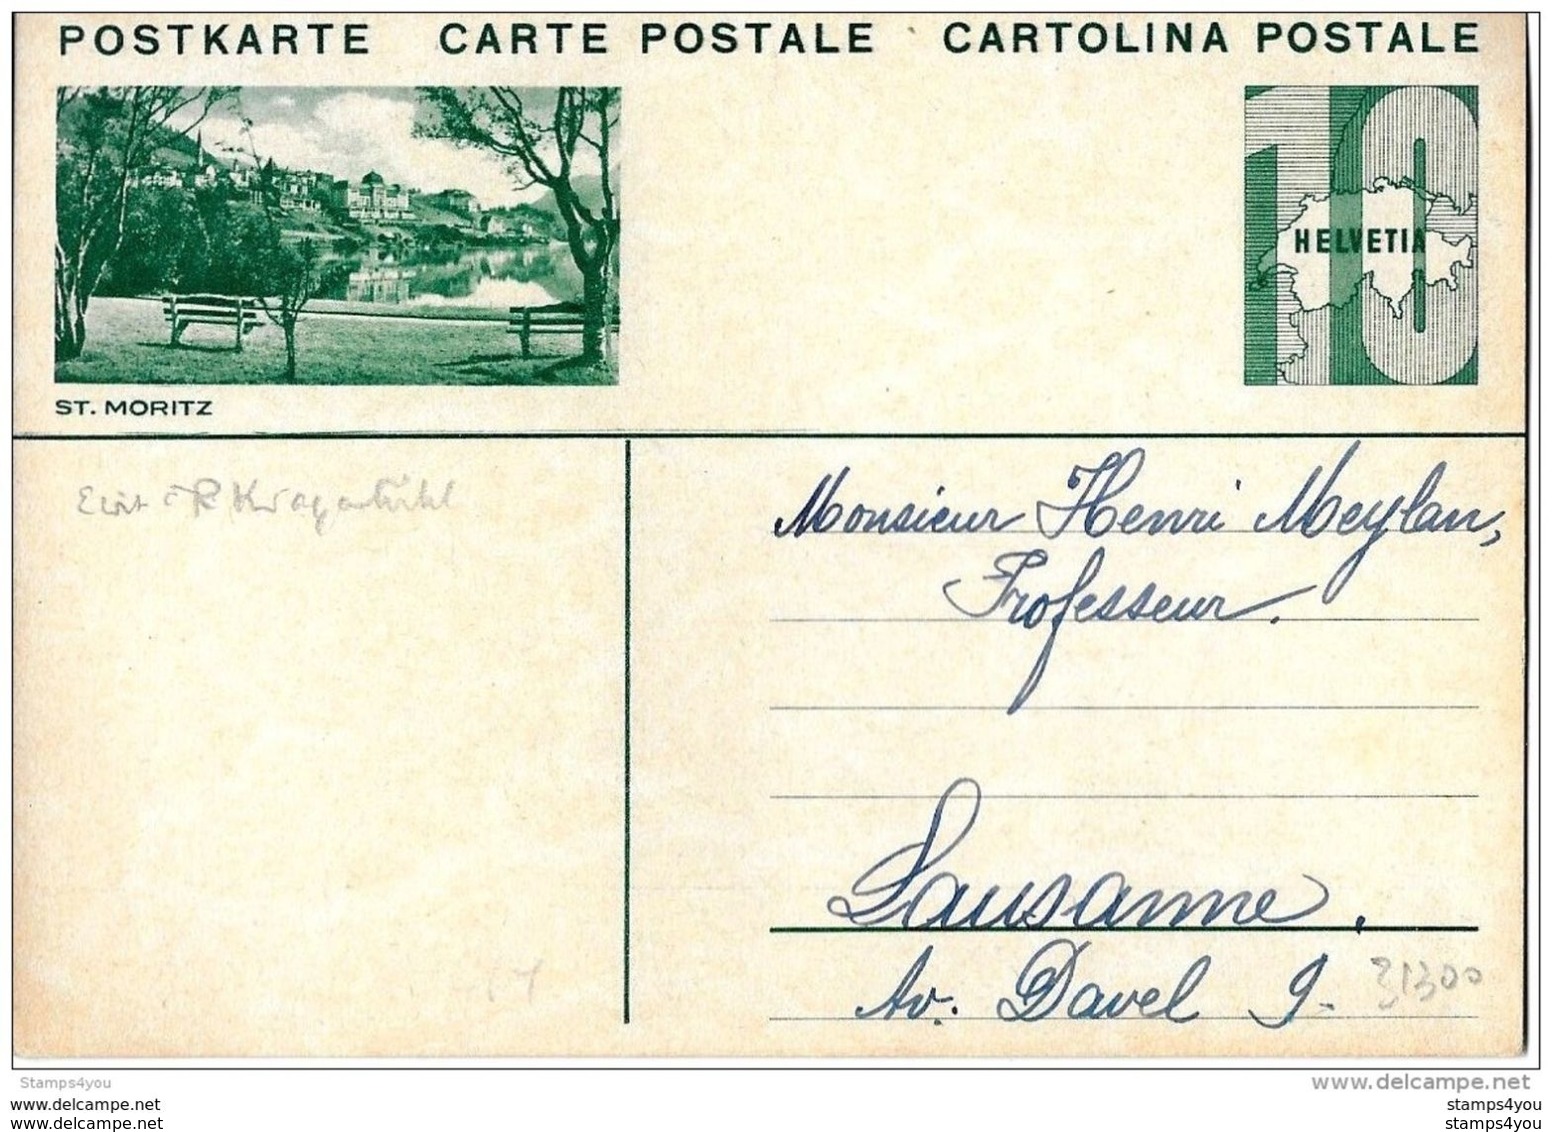 POSTKARTE CARTE POSTALE CARTOLINA POSTALE
10
HELVETIA
ST. MORITZ
Monsieur Henri Meylan,
Professeur.
Lausanne.
Av. Davel 9.
31300
Stamps4you
www.delcampe.net
stamps4you
stamps4you
stamps4you
stamps4you